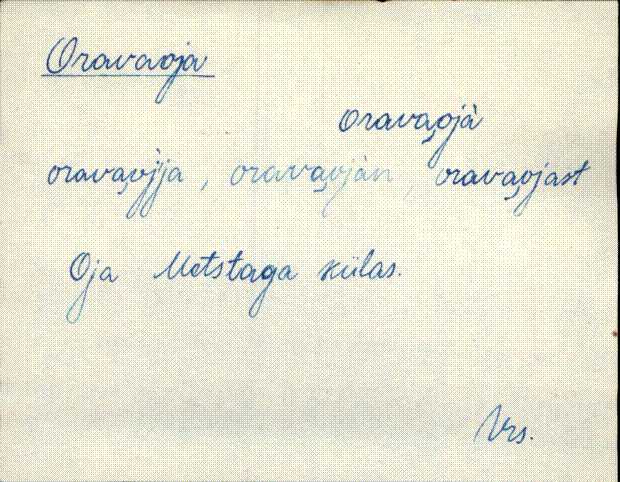 Oravaoja
orava͜ojà
orava͜oj̀ja, orava͜ojàn, orava͜ojast
Oja Metstaga külas.
Vrs.